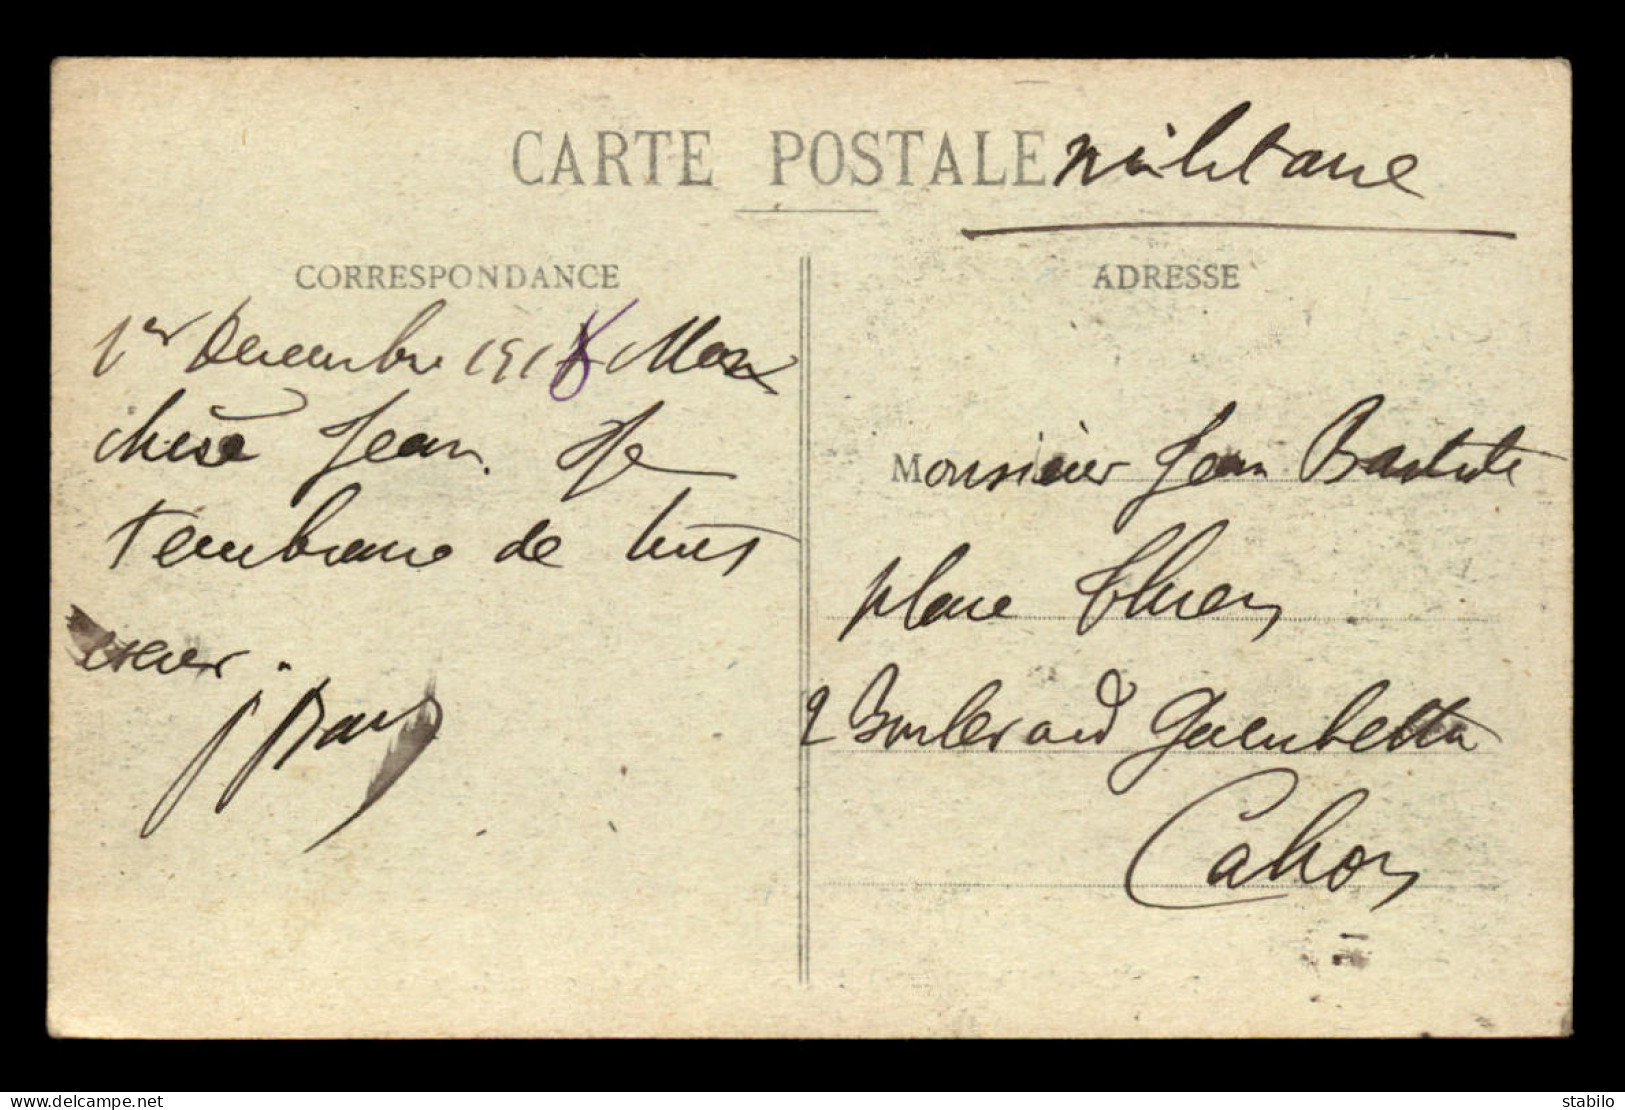 CARTE POSTALE militaire
CORRESPONDANCE
1er Decembre 1918 Mon
cher Jean. Je
t'embrasse de tout
cœur.
ADRESSE
Monsieur Jean
place Thiers
2 Boulevard Gambetta
Cahors
www.delcampe.net
stabilo